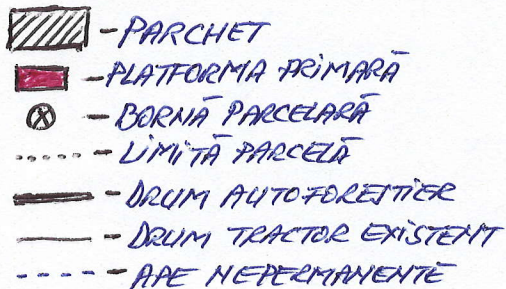 - PARCHET
- PLATFORMA PRIMARĂ
- BORNĂ PARCELARĂ
- LIMITĂ PARCELĂ
- DRUM AUTOFORESTIER
- DRUM TRACTOR EXISTENT
- APE NEPERMANENTE